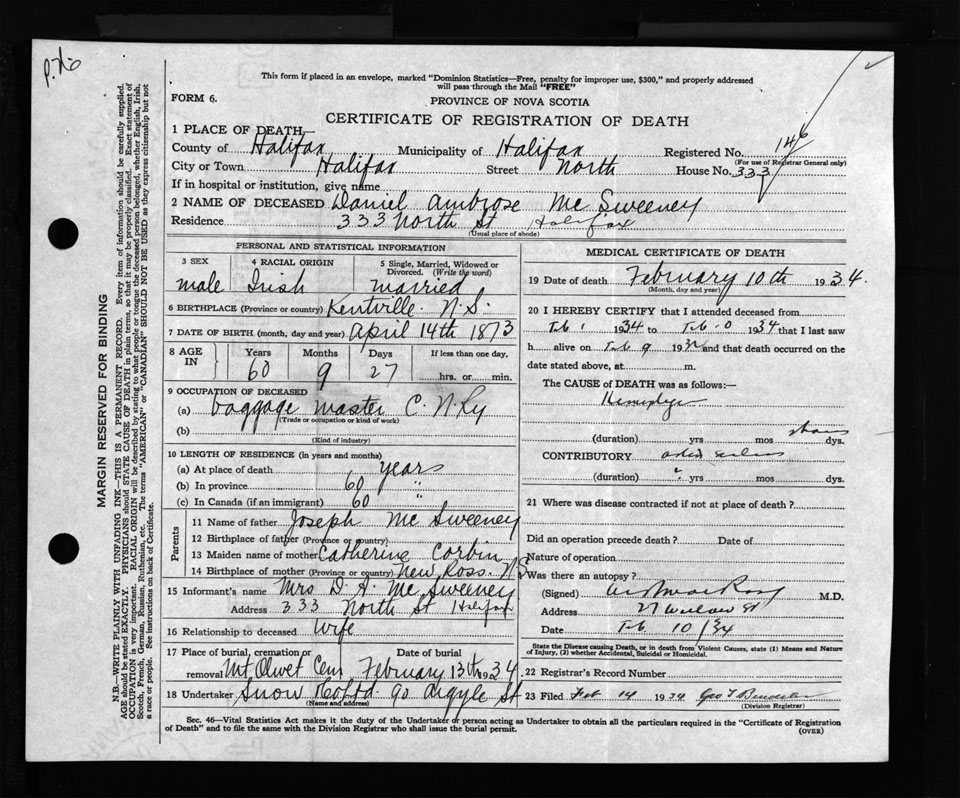 This form if placed in an envelope, marked "Dominion Statistics—Free, penalty for improper use, $300," and properly addressed
will pass through the Mail "FREE"
FORM 6.
PROVINCE OF NOVA SCOTIA
CERTIFICATE OF REGISTRATION OF DEATH
1 PLACE OF DEATH—
County of Halifax Municipality of Halifax Registered No. 146
(For use of Registrar General only)
City or Town Halifax Street North House No. 333
If in hospital or institution, give name
2 NAME OF DECEASED Daniel Ambrose McSweeney
Residence 333 North St Halifax
(Usual place of abode)
PERSONAL AND STATISTICAL INFORMATION
3 SEX 4 RACIAL ORIGIN 5 Single, Married, Widowed or
Divorced. (Write the word)
male Irish married
6 BIRTHPLACE (Province or country) Kentville N.S.
7 DATE OF BIRTH (month, day and year) April 14th 1873
8 AGE IN Years Months Days If less than one day,
60 9 27 hrs. or min.
9 OCCUPATION OF DECEASED
(a) Baggage Master C. N Ry
(Trade or occupation or kind of work)
(b)
(Kind of industry)
10 LENGTH OF RESIDENCE (in years and months)
(a) At place of death years
(b) In province 60 "
(c) In Canada (if an immigrant) 60 "
Parents
11 Name of father Joseph McSweeney
12 Birthplace of father (Province or country)
13 Maiden name of mother Catherine Corbin
14 Birthplace of mother (Province or country) New Ross. N.S
15 Informant's name Mrs D A McSweeney
Address 333 North St Halifax
16 Relationship to deceased Wife
17 Place of burial, cremation or Date of burial
removal Mt Olivet Cem February 13th 1934
18 Undertaker Snow & Co Ltd 90 Argyle St
(Name and address)
MEDICAL CERTIFICATE OF DEATH
19 Date of death February 10th 1934.
(Month, day and year)
20 I HEREBY CERTIFY that I attended deceased from
Feb 1 1934 to Feb 10 1934 that I last saw
h alive on Feb 9 193 and that death occurred on the
date stated above, at m.
The CAUSE of DEATH was as follows:—
Hemiplegia
(duration) yrs mos dys.
CONTRIBUTORY
(duration) ? yrs mos dys.
21 Where was disease contracted if not at place of death?
Did an operation precede death? Date of
Nature of operation
Was there an autopsy?
(Signed) M.D.
Address 21 Willow St
Date Feb 10/34
State the Disease causing Death, or in death from Violent Causes, state (1) Means and Nature
of Injury, (2) whether Accidental, Suicidal or Homicidal.
22 Registrar's Record Number
23 Filed Feb 14 1934 Geo
(Division Registrar)
Sec. 46—Vital Statistics Act makes it the duty of the Undertaker or person acting as Undertaker to obtain all the particulars required in the "Certificate of Registration
of Death" and to file the same with the Division Registrar who shall issue the burial permit.
(OVER)
MARGIN RESERVED FOR BINDING
N.B.—WRITE PLAINLY WITH UNFADING INK—THIS IS A PERMANENT RECORD. Every item of information should be carefully supplied.
AGE should be stated EXACTLY. PHYSICIANS should STATE CAUSE OF DEATH in plain terms, so that it may be properly classified. Exact statement of
OCCUPATION is very important. RACIAL ORIGIN will be described by stating to what people or tongue the deceased person belonged, whether English, Irish,
Scotch, French, German, Russian, Ruthenian, etc. The terms "AMERICAN" or "CANADIAN" SHOULD NOT BE USED as they express citizenship but not
a race or people. See instructions on back of Certificate.